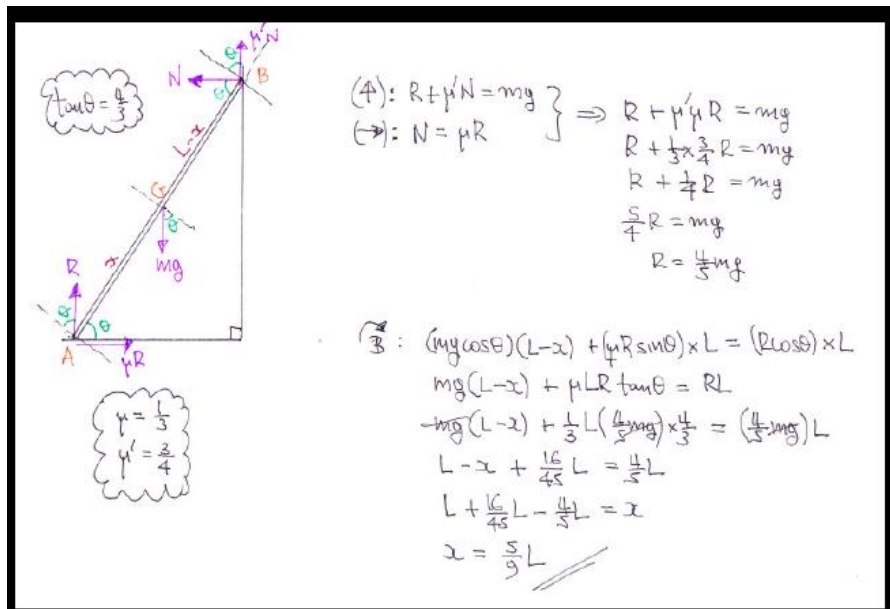 tanθ = 4/3
μ'N
θ
N
B
θ
L-x
G
θ
x
mg
R
θ
θ
A
μR
μ = 1/3
μ' = 3/4
(↑): R + μ'N = mg
(→): N = μR
} ⇒ R + μ'μR = mg
R + 1/3 × 3/4 R = mg
R + 1/4 R = mg
5/4 R = mg
R = 4/5 mg
B: (mgcosθ)(L-x) + (μRsinθ)×L = (Rcosθ)×L
mg(L-x) + μLR tanθ = RL
mg(L-x) + 1/3 L(4/5 mg)×4/3 = (4/5 mg)L
L - x + 16/45 L = 4/5 L
L + 16/45 L - 4/5 L = x
x = 5/9 L